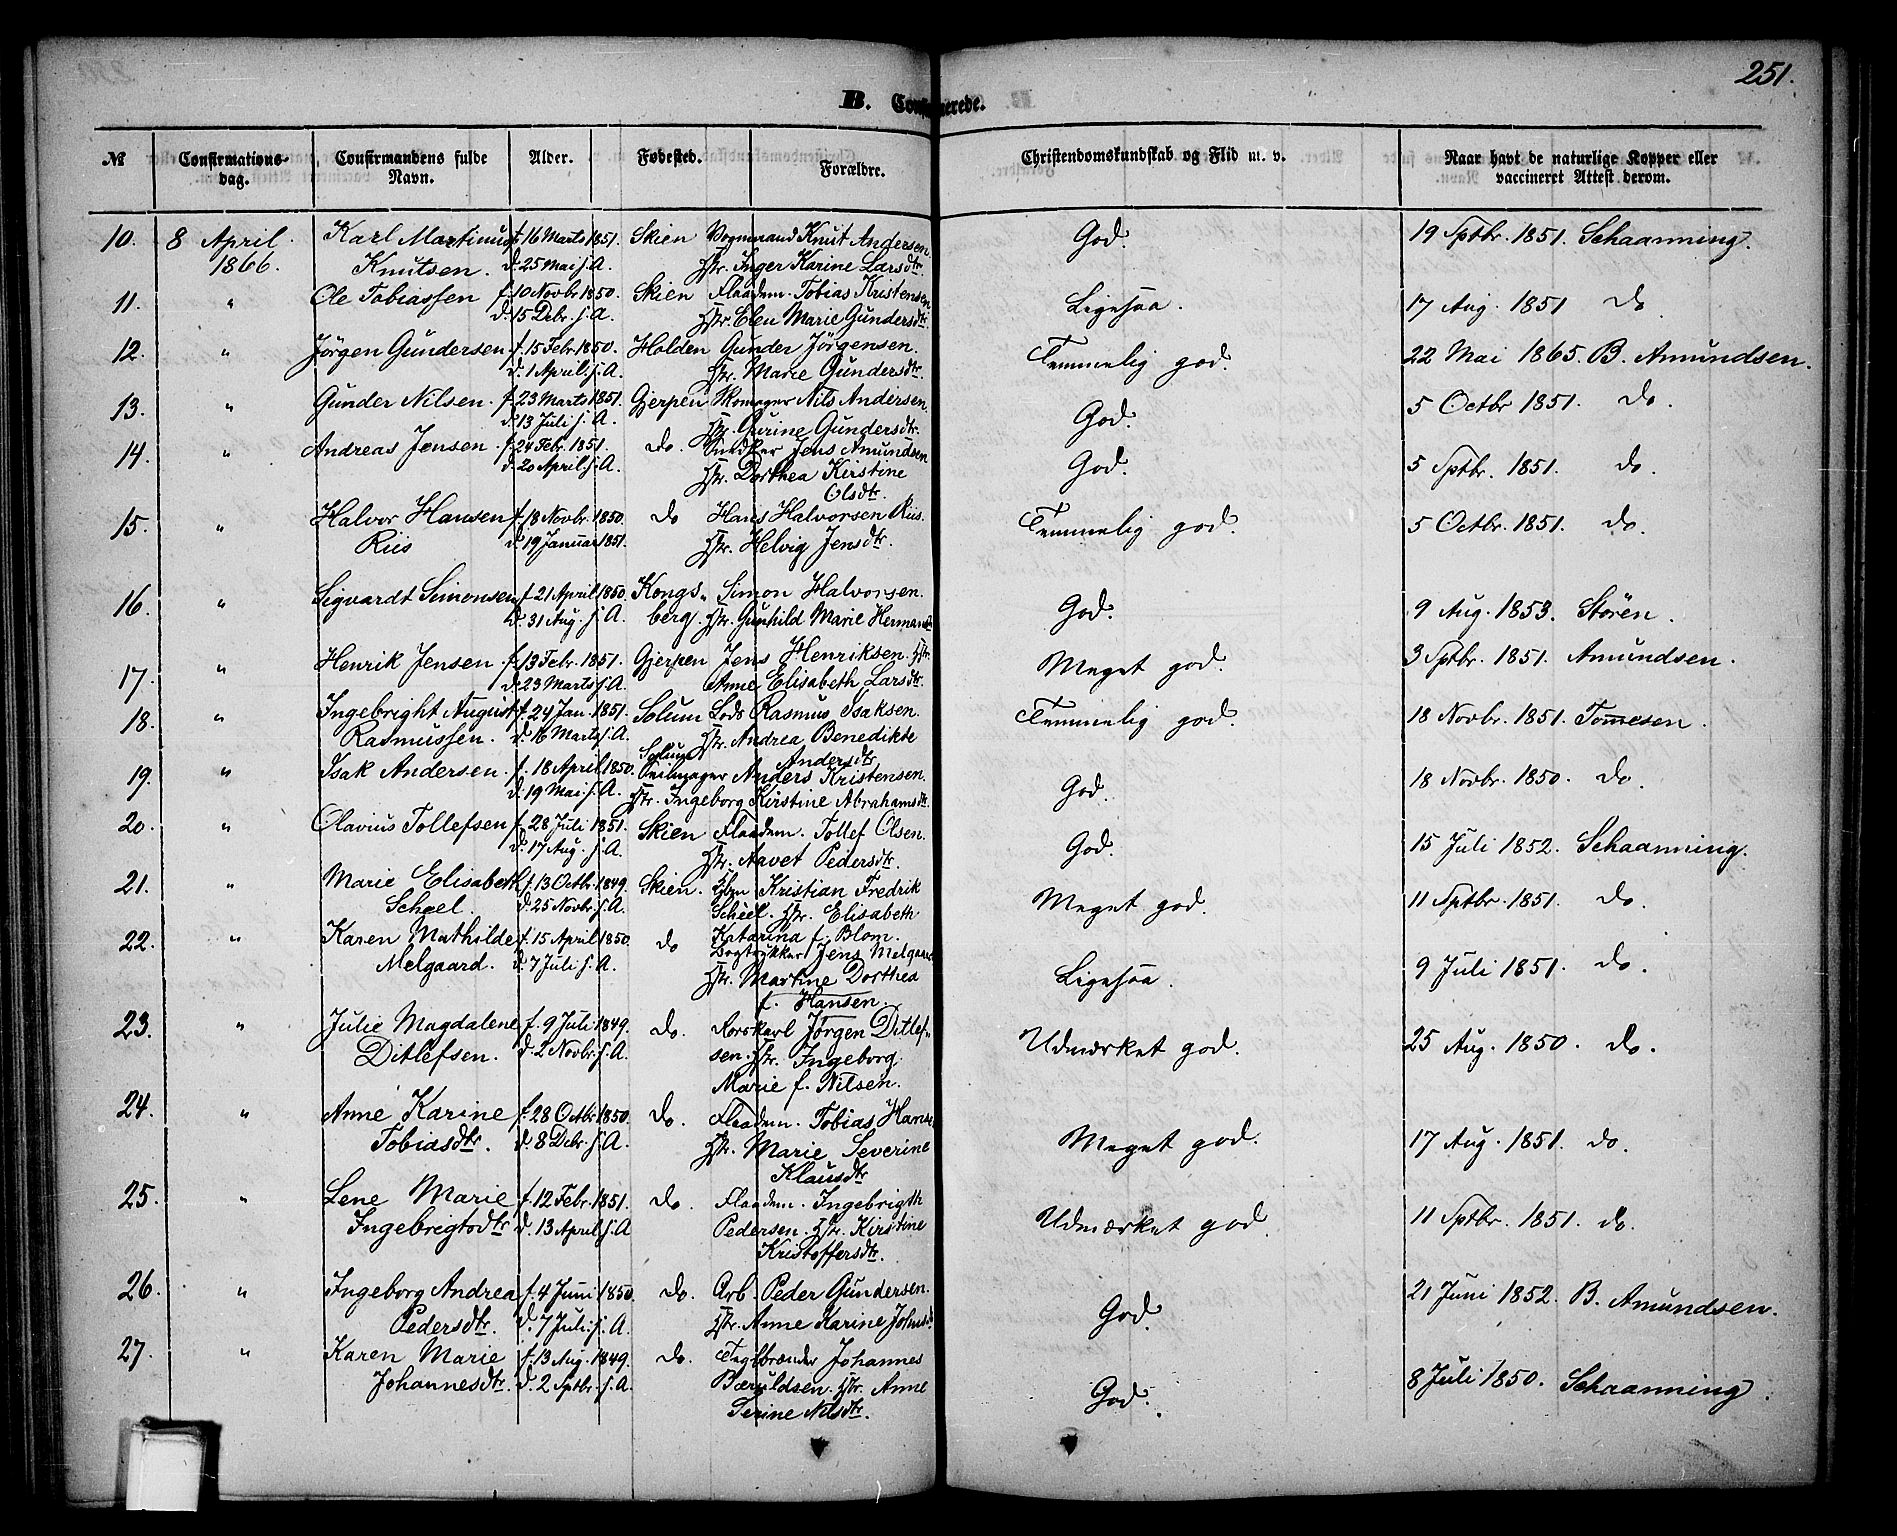 251.
B. Confirmerede.
№ Confirmations-dag. Confirmandens fulde Navn. Alder. Fødested. Forældre. Christendomskundskab og Flid m. v. Naar havt de naturlige Kopper eller vaccineret Attest derom.
10. 8 April 1866. Karl Martinus f. 16 Marts 1851. Skien Vognmand Knut Andersen God. 19 Sptbr. 1851. Schaanning.
Knutsen. d. 25 Mai s. A. Hstr. Inger Karine Larsdtr.
11. " Ole Tobiassen f. 10 Novbr 1850. Skien Flaadem. Tobias Kristensen Ligesaa. 17 Aug. 1851 do
d. 15 Debr. s. A. Hstr. Elen Marie Gundersdtr.
12. " Jörgen Gundersen f. 15 Febr 1850. Holden Gunder Jörgensen. Temmelig god. 22 Mai 1865. B. Amundsen.
d. 1 April. s. A. Hstr. Marie Gundersdtr.
13. " Gunder Nilsen. f. 23 Marts 1851. Gjerpen Skomager Nils Andersen. God. 5 Octbr 1851. do.
d. 13 Juli s. A. Hstr. Gurine Gundersdtr.
14. " Andreas Jensen. f. 24 Febr. 1851. do. Snedker Jens Amundsen God. 5 Sptbr. 1851. do.
d. 20 April s. A. Hstr. Dorthea Kirstine
Olsdtr.
15. " Halvor Hansen f. 18 Novbr. 1850. do Hans Halvorsen Riis. Temmelig god. 5 Octbr. 1851. do.
Riis d. 19 Januar 1851. Hstr. Helvig Jensdtr.
16. " Sigvardt Simonsen f. 21 April 1850. Kongs„ Simon Halvorsen. God. 9 Aug. 1853. Stören.
d. 31 Aug. s. A. berg. Hstr. Gunhild Marie Hermansdtr
17. " Henrik Jensen. f. 13 Febr. 1851. Gjerpen Jens Henriksen. Hstr. Meget god. 3 Sptbr. 1851. Amundsen.
d. 23 Marts s. A. Anne Elisabeth Larsdtr.
18. " Ingebright August f. 24 Jan. 1851. Solum Lods Rasmus Isaksen. Temmelig god. 18 Novbr. 1851. Tomesen.
Rasmussen. d. 16 Marts s. A. Hstr. Andrea Benedikte
Andersdtr
19. " Isak Andersen. f. 18 April 1850. Solum Seilmager Anders Kristensen. God. 18 Novbr. 1850. do.
d. 19 Mai s. A. Hstr. Ingeborg Kirstine Abrahamsdtr.
20. " Olavius Tollefsen f. 28 Juli 1851. Skien Flaadem. Tollef Olsen. God. 15 Juli 1852. Schaanning.
d. 17 Aug. s. A. Hstr. Aavet Pedersdtr.
21. " Marie Elisabeth f. 13 Octbr. 1849. Skien. Kristian Fredrik Meget god. 11 Sptbr. 1851. do.
Scheel. d. 25 Novbr. s. A. Scheel. Hstr. Elisabeth
Katarina f. Blom.
22. " Karen Mathilde f. 15 April 1850. do Bogtrykker Jens Melgaard Ligesaa. 9 Juli 1851. do.
Melgaard. d. 7 Juli s. A. Hstr. Martine Dorthea
f. Hansen.
23. " Julie Magdalene f. 9 Juli 1849. do. Rorskarl Jörgen Ditlef„ Udmærket god. 25 Aug. 1850. do.
Ditlefsen. d. 2 Novbr. s. A. sen. Hstr. Ingeborg
Marie f. Nilsen.
24. " Anne Karine f. 28 Octbr. 1850. do. Flaadem. Tobias Hans. Meget god. 17 Aug. 1851. do.
Tobiasdtr. d. 8 Debr. s. A. Hstr. Marie Severine
Klausdtr
25. " Lene Marie f. 12 Febr. 1851. do. Flaadem. Ingebrigth Udmærket god. 11 Sptbr. 1851. do.
Ingebrigtsdtr d. 13 April s. A Pedersen. Hstr. Kirstine
Kristoffersdtr.
26. " Ingeborg Andrea f. 4 Juni 1850. do. Arb. Peder Gundersen. God. 21 Juni 1852. B. Amundsen.
Pedersdtr. d. 7 Juli. s. A. Hstr. Anne Karine Johnsdtr
27. " Karen Marie f. 13 Aug. 1849. do. Teglbrænder Johannes God. 8 Juli 1850. Schaanning.
Johannesdtr. d. 2 Sptbr. s. A. Bæruldsen. Hstr. Anne
Serine Nilsdtr.